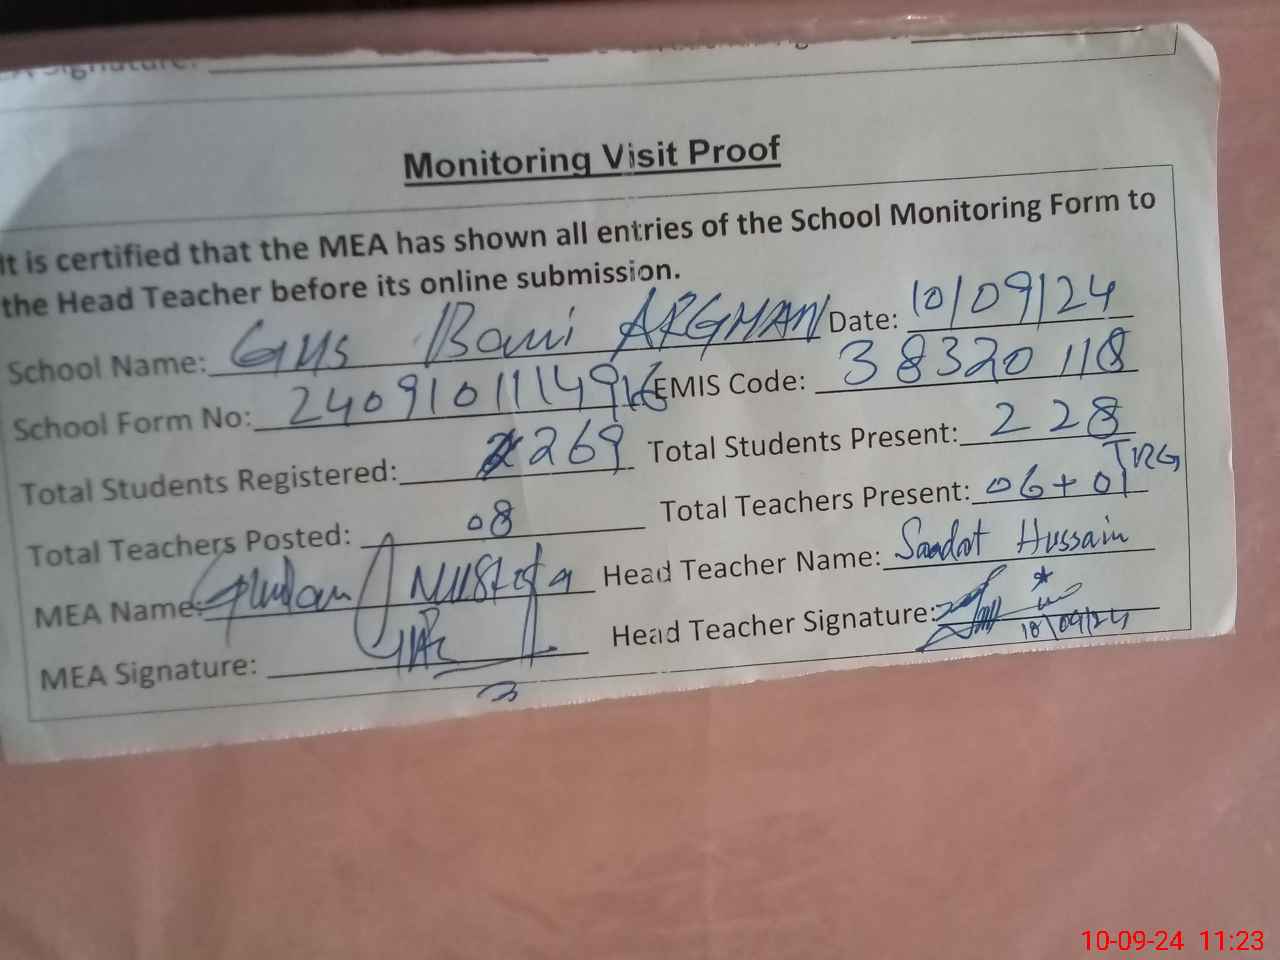 Signature:
Monitoring Visit Proof
It is certified that the MEA has shown all entries of the School Monitoring Form to
the Head Teacher before its online submission.
School Name: GHS Bani ARGHAN Date: 10/09/24
School Form No: EMIS Code: 38320118
Total Students Registered: 269 Total Students Present: 228
Total Teachers Posted: 08 Total Teachers Present: 06+01 TRG
MEA Name: Ghulam Mustafa Head Teacher Name: Saadat Hussain
MEA Signature: Head Teacher Signature:
10/09/24
10-09-24 11:23